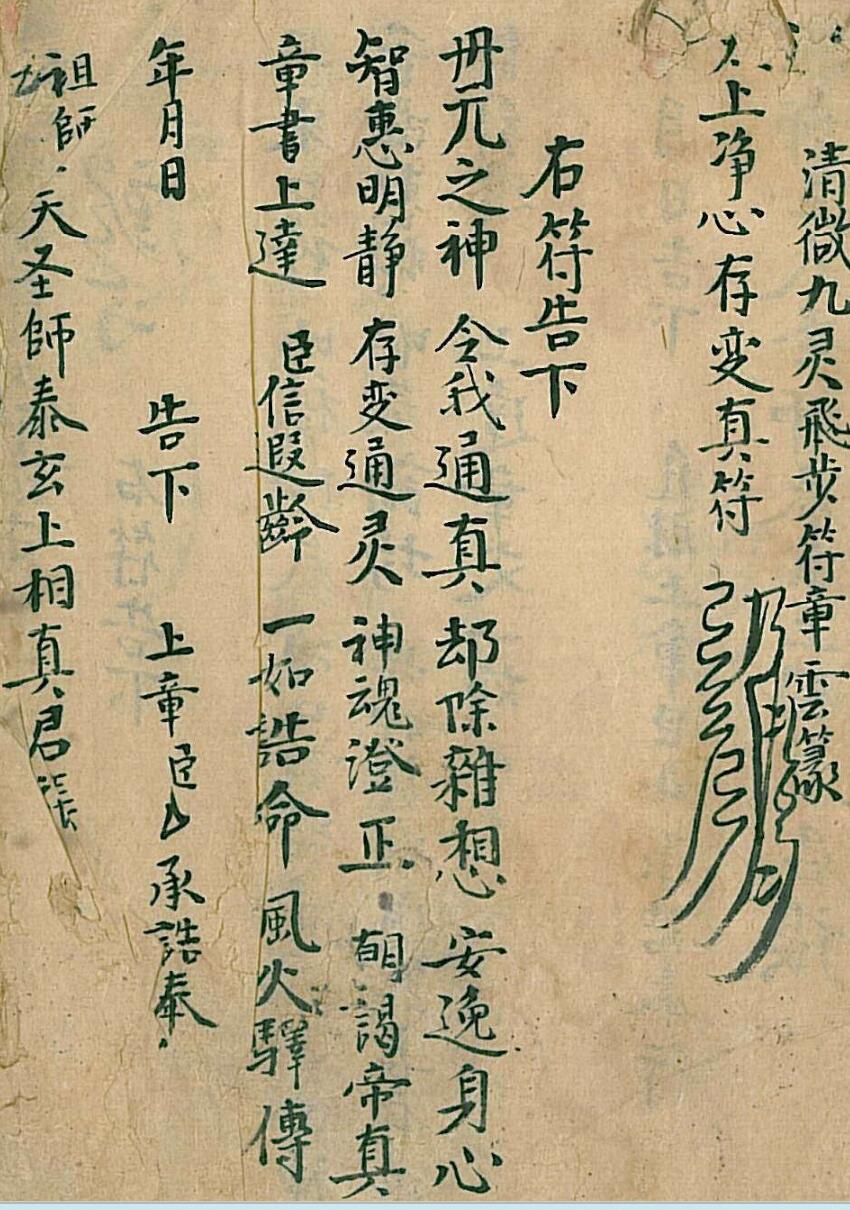 清微九灵飛步符章雲篆
太上净心存变真符
右符告下
丹元之神 令我通真 却除雜想 安逸身心
智惠明静 存变通灵 神魂澄正 朝謁帝真
章書上達 臣信遐齡 一如誥命 風火驛傳
年月日 告下 上章臣厶承誥奉
祖師天圣師泰玄上相真君張